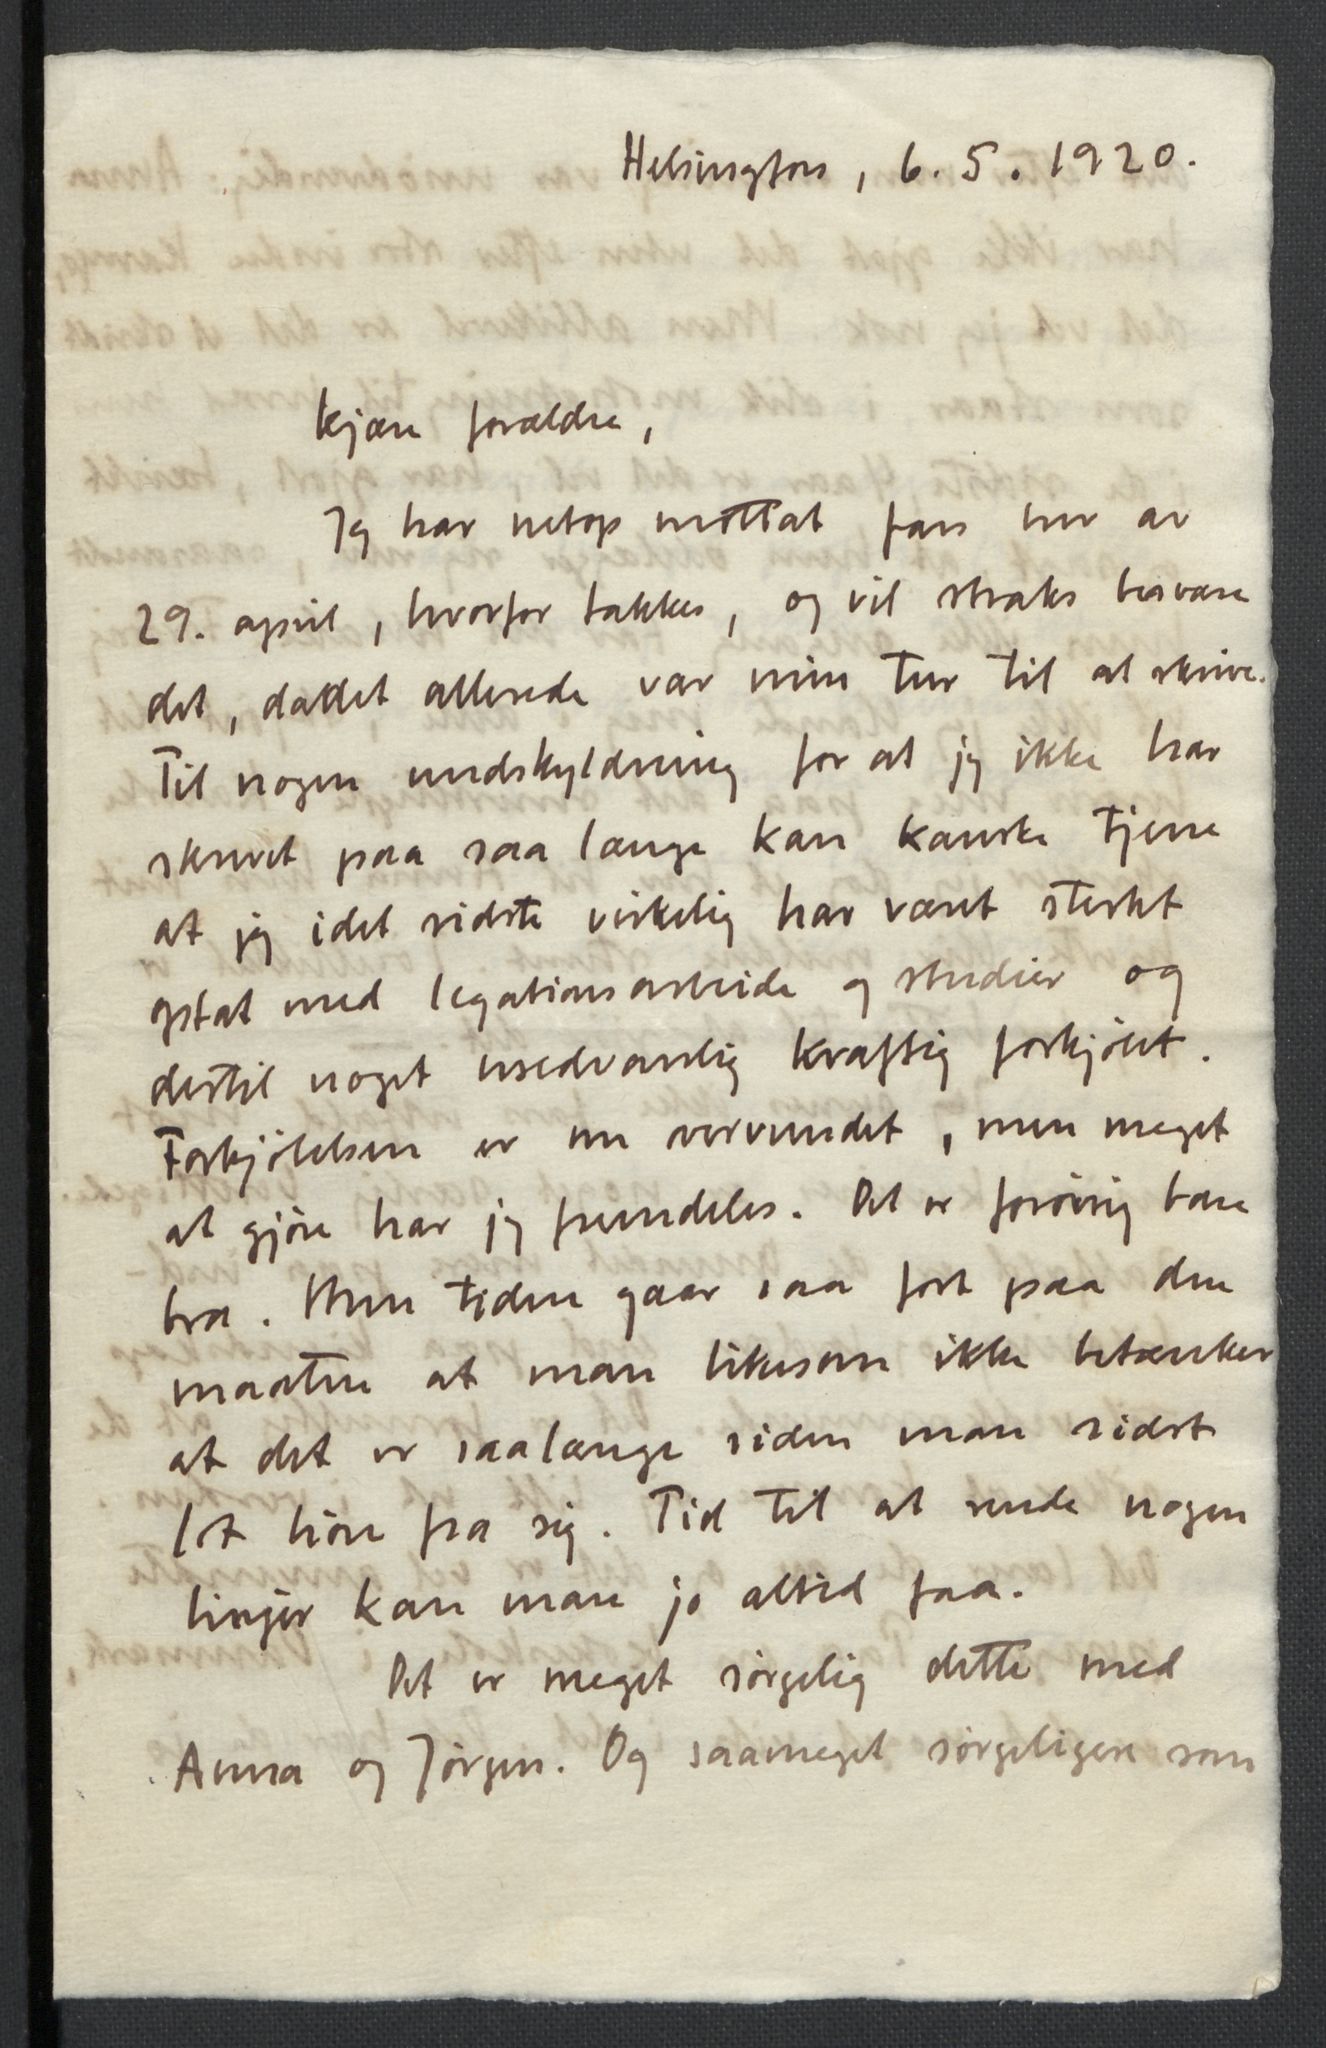 Helsingfors, 6.5.1920.
Kjære forældre,
Jeg har netop mottat fars brev av
29. april, hvorfor takkes, og vil straks besvare
det, da det allerede var min tur til at skrive.
Til nogen undskyldning for at jeg ikke har
skrevet paa saa længe kan kanske tjene
at jeg i det sidste virkelig har været sterkt
optat med legationsarbeide og studier og
dertil noget usedvanlig kraftig forkjölet.
Forkjölelsen er nu overvundet, men meget
at gjöre har jeg fremdeles. Det er forövrig bare
bra. Men tiden gaar saa fort paa den
maaten at man likesom ikke betænker
at det er saa længe siden man sidst
lot höre fra sig. Tid til at sende nogen
linjer kan man jo altid faa.
Det er meget sörgelig dette med
Anna og Jörgen. Og saameget sörgeligere som